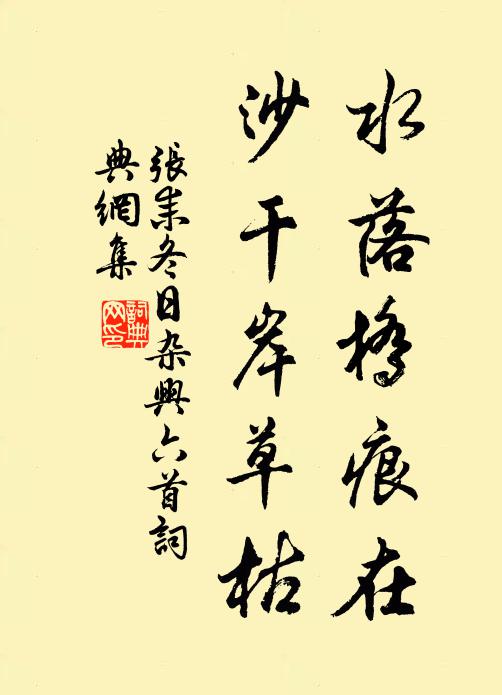 水落桥痕在
沙干岸草枯
張耒冬日杂興六首詞
典網集
詞典
网印